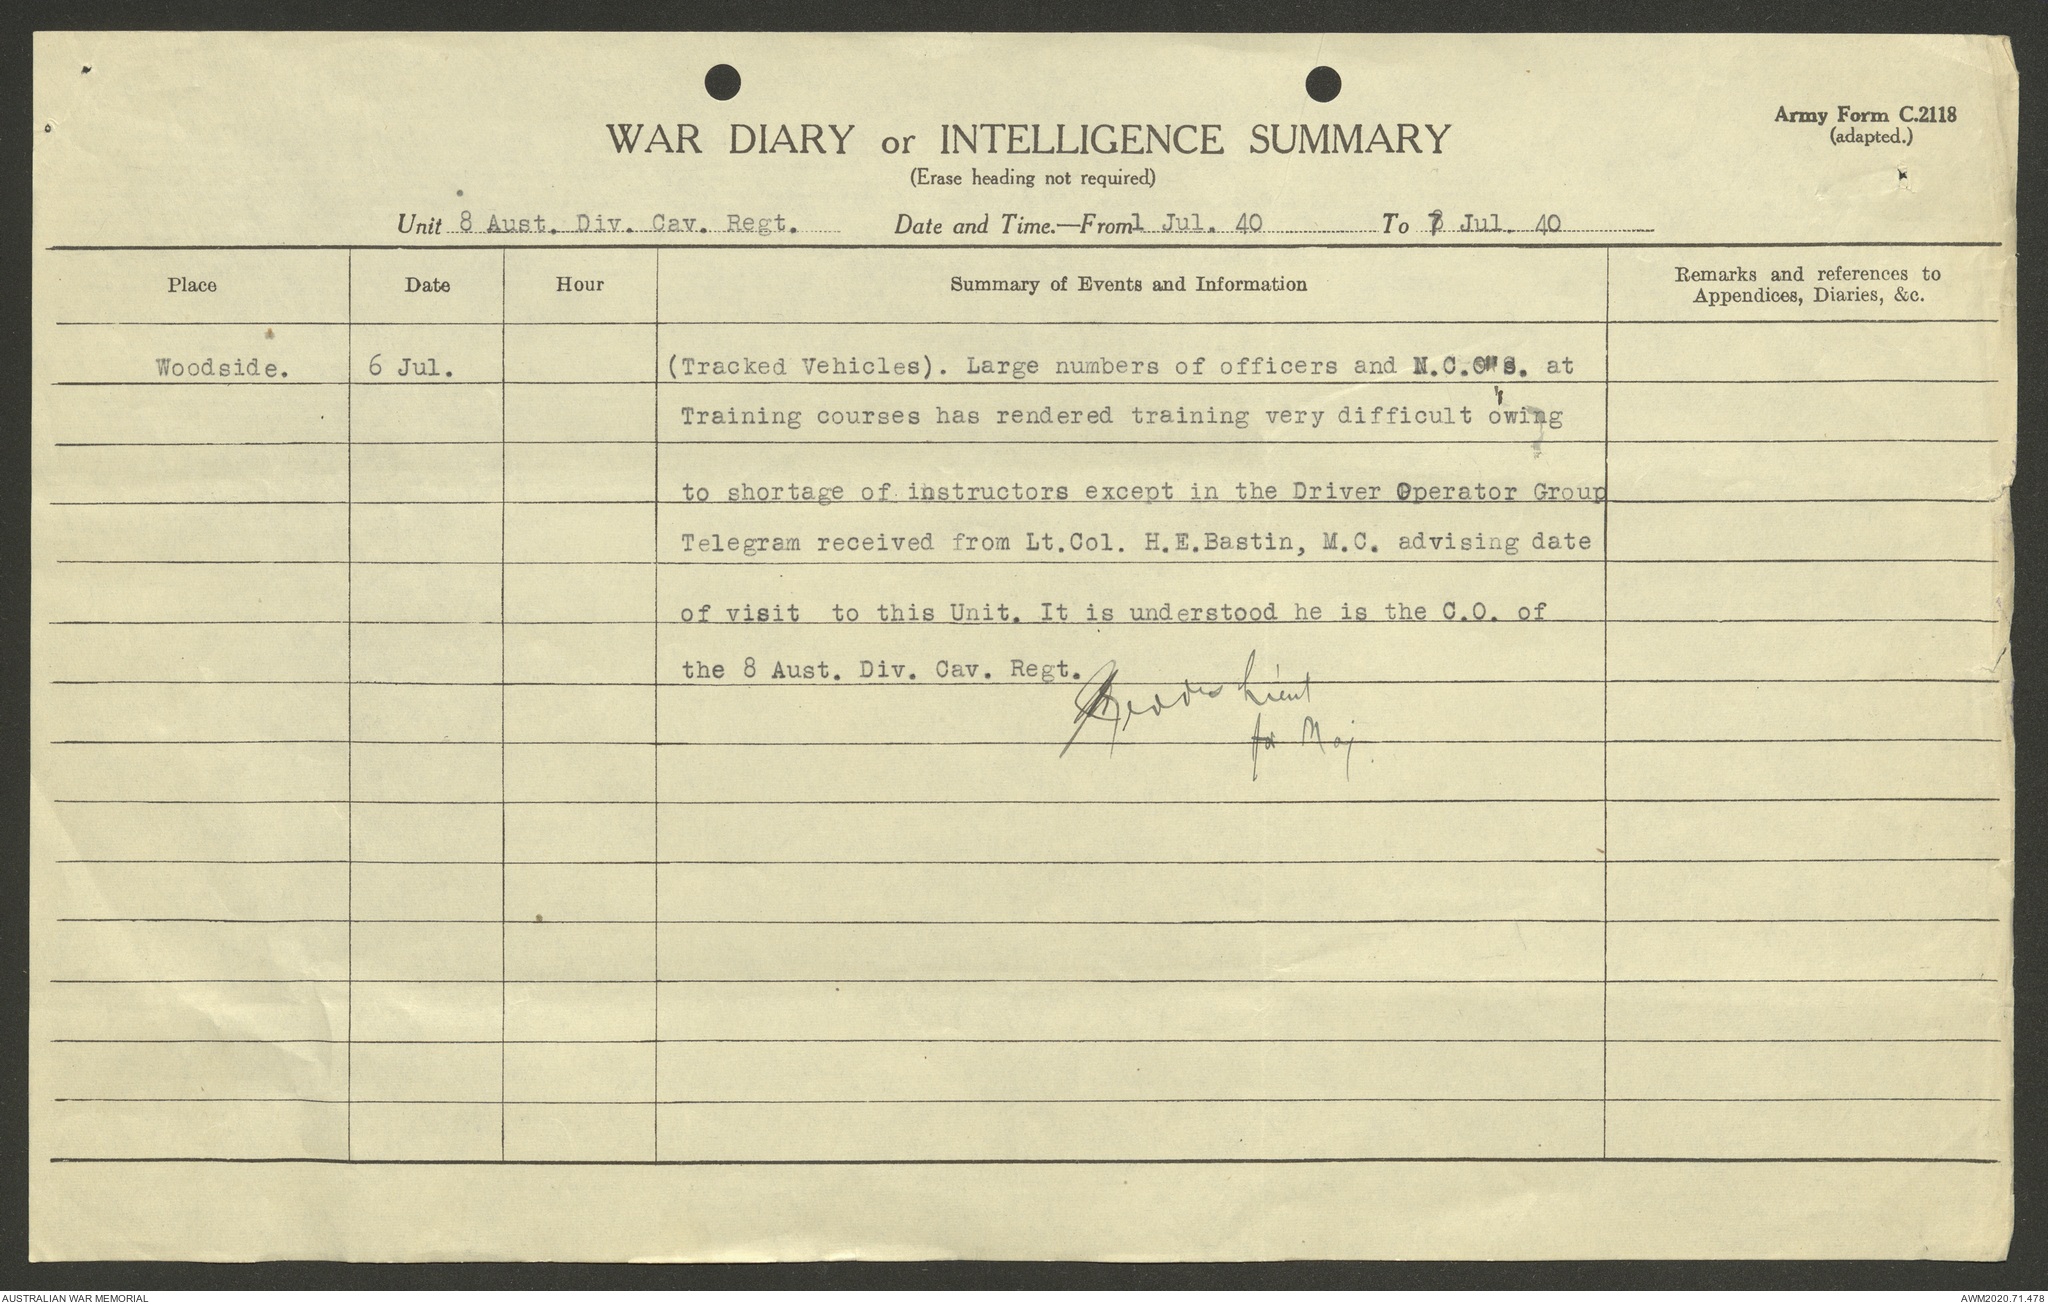 Army Form C.2118
(adapted.)
WAR DIARY or INTELLIGENCE SUMMARY
(Erase heading not required)
Unit 8 Aust. Div. Cav. Regt. Date and Time.—From 1 Jul. 40 To 7 Jul. 40
Place Date Hour Summary of Events and Information Remarks and references to
Appendices, Diaries, &c.
Woodside. 6 Jul. (Tracked Vehicles). Large numbers of officers and N.C.O's. at
Training courses has rendered training very difficult owing
to shortage of instructors except in the Driver Operator Group
Telegram received from Lt.Col. H.E.Bastin, M.C. advising date
of visit to this Unit. It is understood he is the C.O. of
the 8 Aust. Div. Cav. Regt.
Lieut
for Maj.
AUSTRALIAN WAR MEMORIAL AWM2020.71.478